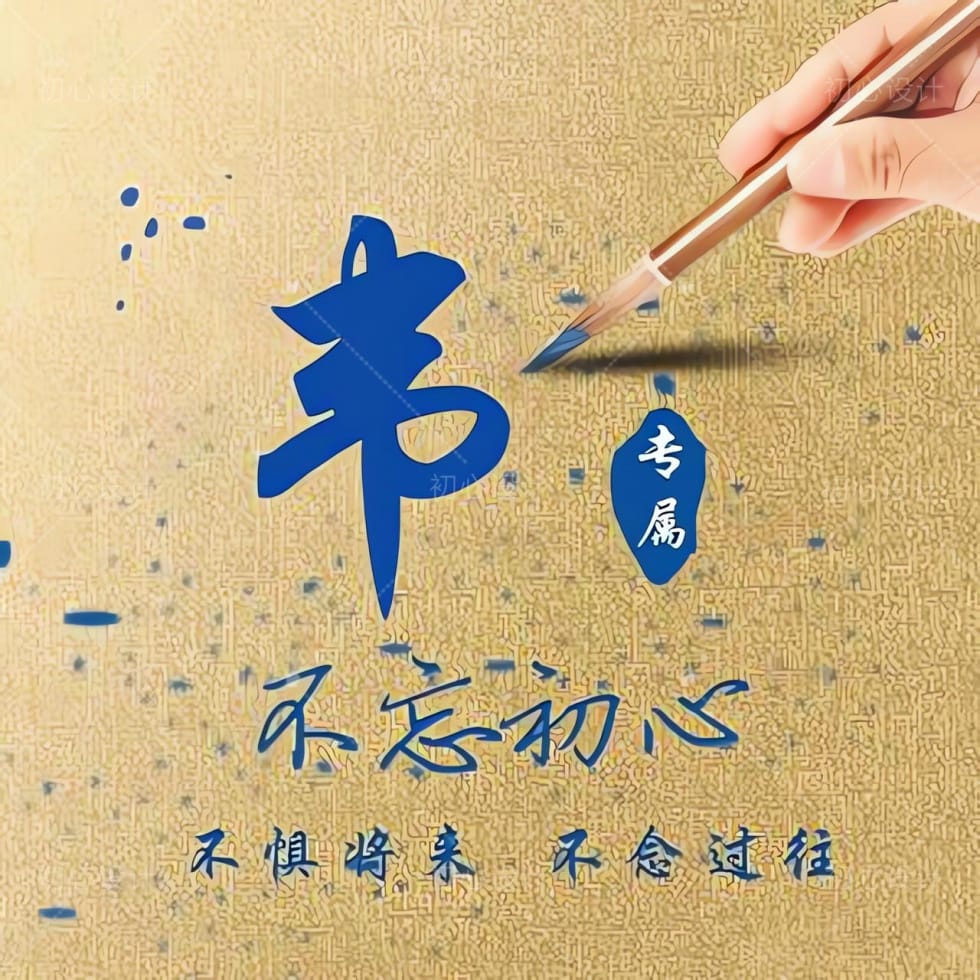 初心设计
初心设计
韦
专
属
初心设
不忘初心
不惧将来 不念过往